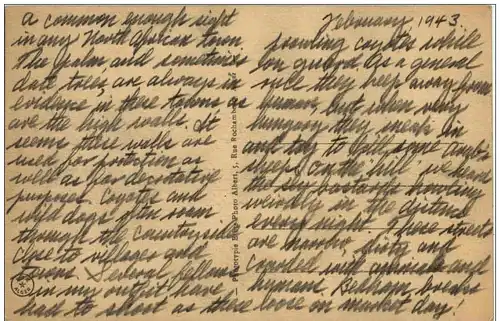 a common enough sight
in any North African town
The palm and sometimes
date trees are always in
evidence in these towns as
are the high walls. It
seems these walls are
used for protection as
well as for decorative
purposes. Coyotes and
wild dogs often roam
through the countryside
close to villages and
towns. Several fellows
in my outfit have
had to shoot at these
February, 1943
prowling coyotes while
on guard. As a general
rule they keep away from
human, but when very
hungry they sneak in
and try to
sheep. On the hill, we heard
the sly bastards howling
weirdly in the distance
every night. These streets
are narrow, dirty and
crowded with animals and
humans. Bedlam breaks
loose on market day!
Phototypie Photo Albert, 5, Rue Rochambeau